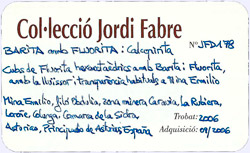 Col·lecció Jordi Fabre
BARITA amb FLUORITA i Calcopirita
Nº JFD178
Cubs de Fluorita hexaoctaèdrics amb Barita i Fluorita,
amb la lluïssor i transparència habituals a Mina Emilio
Mina Emilio, filó Obdulia, zona minera Caravia, La Rubiera,
Loroñe, Colunga, Comarca de la Sidra,
Asturias, Principado de Asturias España
Trobat: 2006
Adquisició: 09/2006